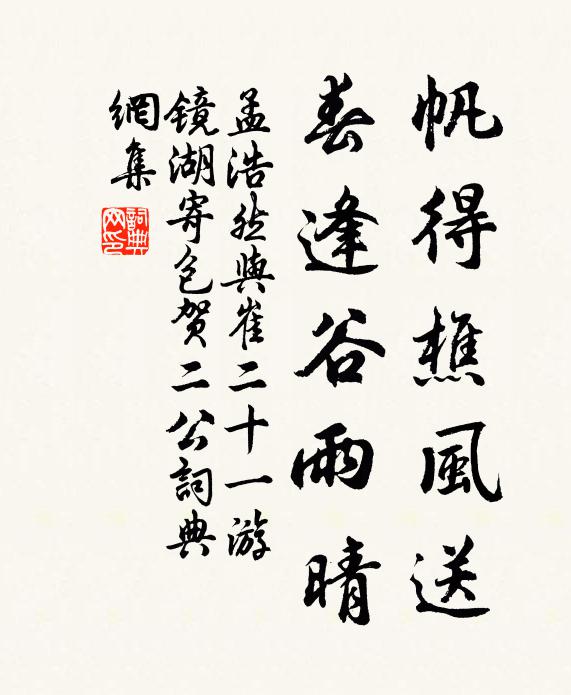 帆得樵風送
春逢谷雨晴
孟浩然與崔二十一游
鏡湖寄包賀二公詞典
網集
詞典网印